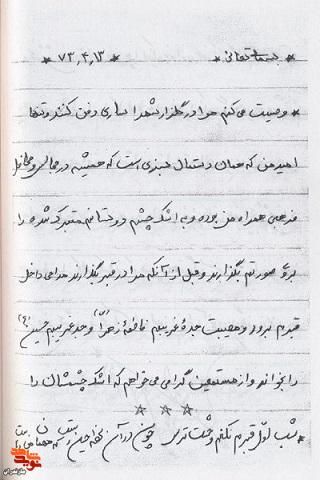 * بسمه تعالی * * ۷۳,۴,۱۳ *
* وصیت می‌کنم مرا در گلزار شهدا ساری دفن کنند و تنها
امید من که همان دستمال سبزی است که همیشه در مجالس و محافل
مذهبی همراه من بوده و به اشک چشم دوستانم متبرک شده را
بر صورتم بگذارند و قبل از آنکه مرا در قبر بگذارند مداحی داخل
قبرم برود و مصیبت جدهٔ غریبم فاطمهٔ زهرا (س) و جد غریبم حسین (ع)
را بخواند و از مستمعین گرامی می‌خواهم که اشک چشمشان را
* * *
* شب اول قبرم نکنم وحشت و ترس چون در آن لحظه حسین
مازندران